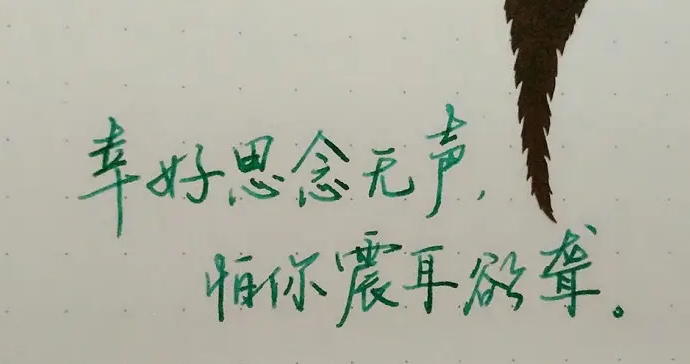 幸好思念无声，
怕你震耳欲聋。